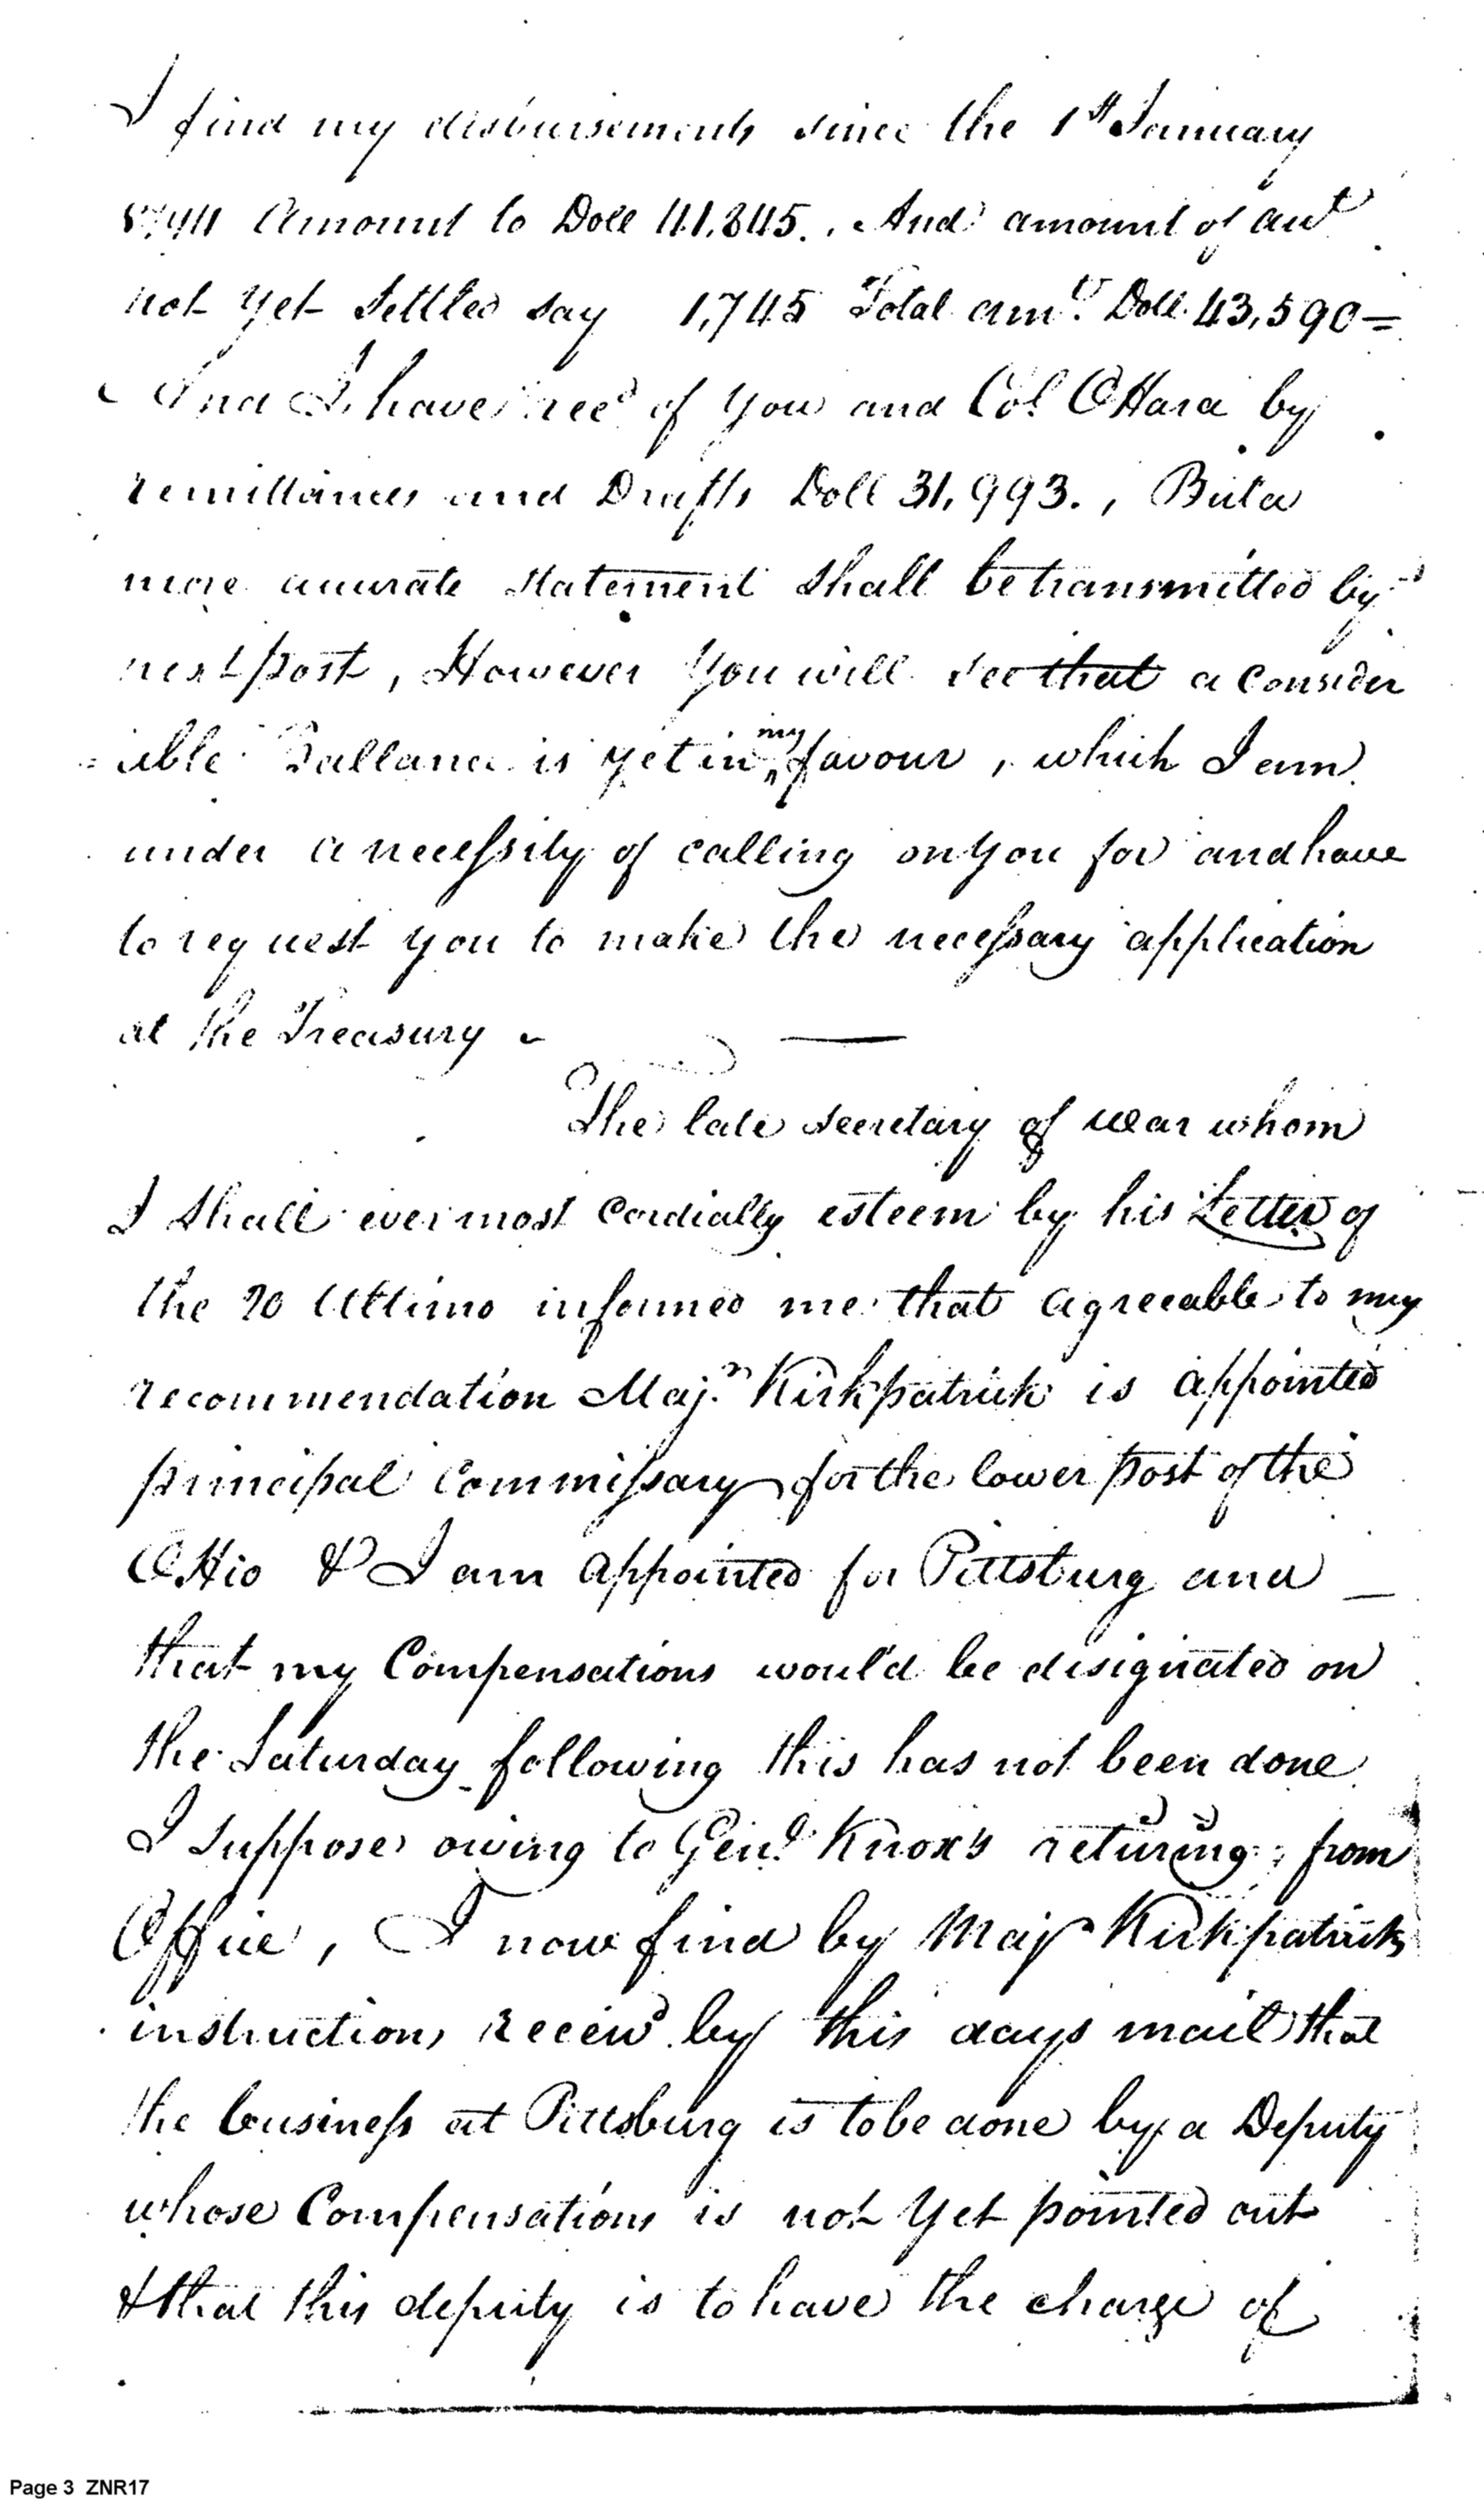 I find my disbursements since the 1st January
1794 Amount to Doll 41,845. And amount of act
not yet Settled say 1,745 Total amt. Doll. 43,590=
And I have recd of you and Col. OHara by
remittances and Drafts Doll 31,993., But a
more accurate Statement Shall be transmitted by
next post, However you will see that a Consider
=able Ballance is yet in my favour, which I am
under a necessity of calling on you for and have
to request you to make the necessary application
at the Treasury
The late Secretary of war whom
I Shall ever most Cordially esteem by his Letter of
the 20 Ultimo informed me that agreeable to my
recommendation Majr. Kirkpatrick is appointed
principal Commissary for the lower post of the
OHio & I am appointed for Pittsburg and
that my Compensations would be designated on
the Saturday following this has not been done
I suppose owing to Genl. Knox's returing from
Office, I now find by Majr Kirkpatricks
instructions receivd by this days mail that
the business at Pittsburg is to be done by a Deputy
whose Compensations is not yet pointed out
& that this deputy is to have the charge of
Page 3 ZNR17